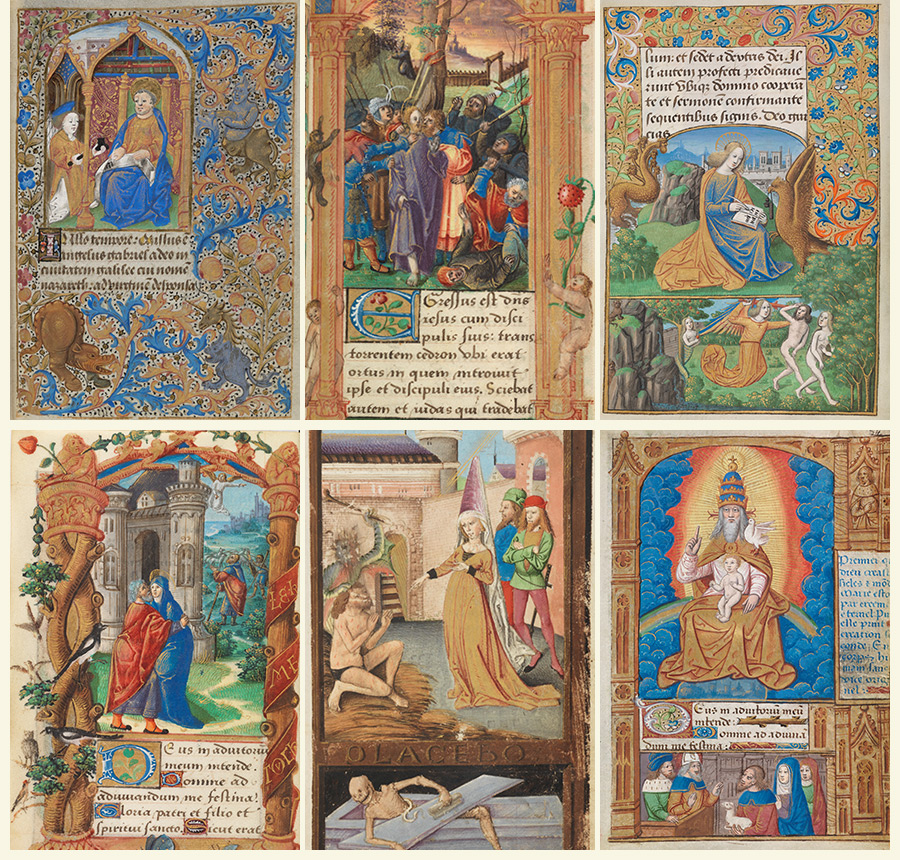 IN illo tempore: Missus e
angelus gabriel adeo in
ciuitatem galilee cui nome
nazareth: ad virginē desponsa
EGressus est dn̄s
iesus cum disci
pulis suis: trans
torrentem cedron vbi erat
ortus in quem introiuit
ipse et discipuli eius. Sciebat
autem et iudas qui tradebat
lum: et sedet a dextris dei. Il
li autem profecti predicaue
runt vbiq; domino cooperā
te et sermonē confirmante
sequentibus signis. Deo gra
cias
DEus in adiutoriū
meum intende.
Domine ad
adiuuandum me festina.
Gloria patri et filio et
spiritui sancto. Sicut erat
OLACEBO
Premier
dieu creas
DEus in adiutoriū meū
intende:
Domine ad adiuuā
dum me festina: